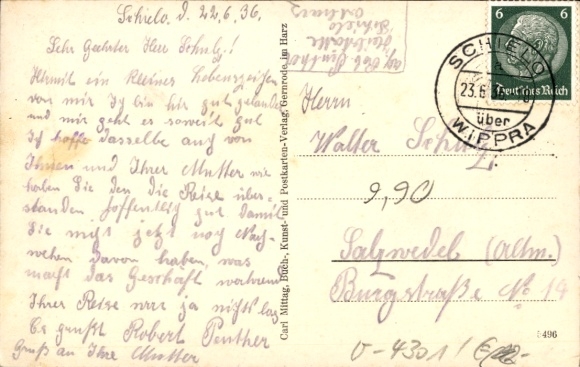 Schielo. d. 22.6.36.
Sehr geehrter Herr Schulz!
Hiermit ein kleines Lebenszeichen
von mir Ich bin hir gut gelandet
und mir geht es soweit gut
Ich hoffe dasselbe auch von
Ihnen und Ihrer Mutter wie
haben Sie den die Reise über-
standen hoffentlich gut damit
Sie nicht jetzt noch Nach-
wehen davon haben, was
macht das Geschäft während
Ihrer Reise war ja nichts los
Es grüßt Robert Penther
Gruß an Ihre Mutter
Carl Mittag, Buch-, Kunst- und Postkarten-Verlag, Gernrode, im Harz
Schielo
Ostharz
6 6
Deutsches Reich
SCHIELO
23.6.
über
WIPPRA
Herrn
Walter Schulz
9,90
Salzwedel (Altm.)
Burgstraße No 19
5496
V-4301!